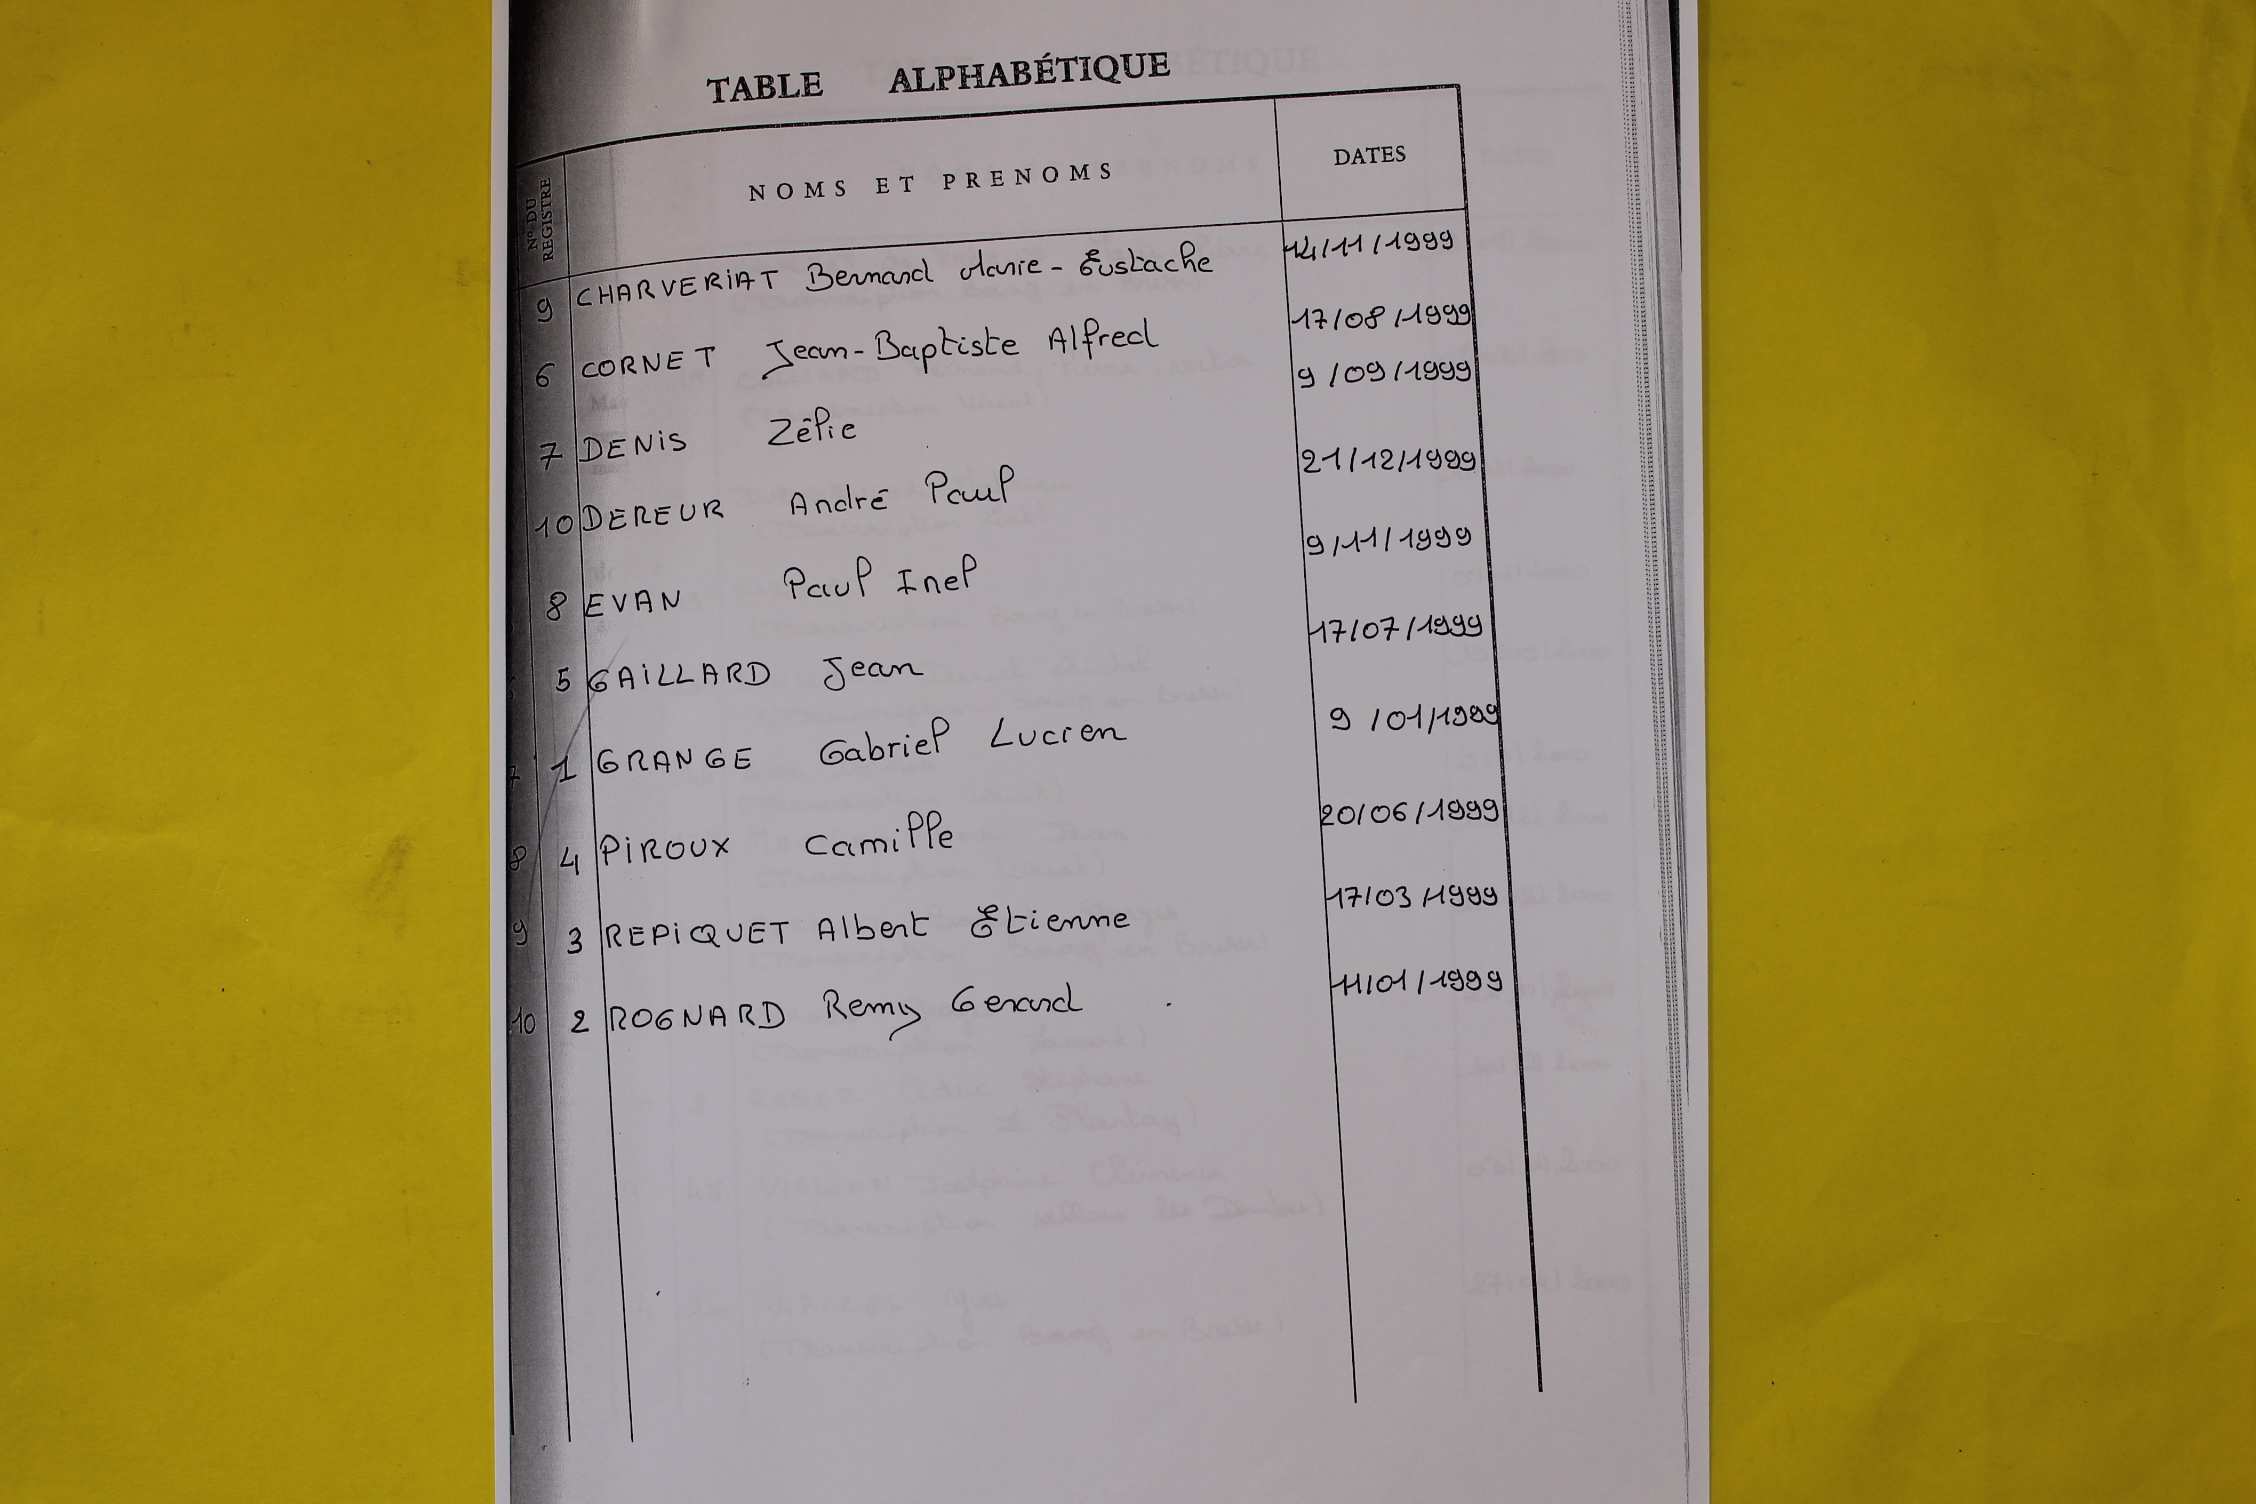 TABLE ALPHABÉTIQUE
N° DU REGISTRE NOMS ET PRENOMS DATES
9 CHARVERIAT Bernard Marie-Eustache 14/11/1999
6 CORNET Jean-Baptiste Alfred 17/08/1999
7 DENIS Zélie 9/09/1999
10 DEREUR André Paul 21/12/1999
8 EVAN Paul Inel 9/11/1999
5 GAILLARD Jean 17/07/1999
7 1 GRANGE Gabriel Lucien 9/01/1999
8 4 PIROUX Camille 20/06/1999
9 3 REPIQUET Albert Etienne 17/03/1999
10 2 ROGNARD Remy Gerard 11/01/1999